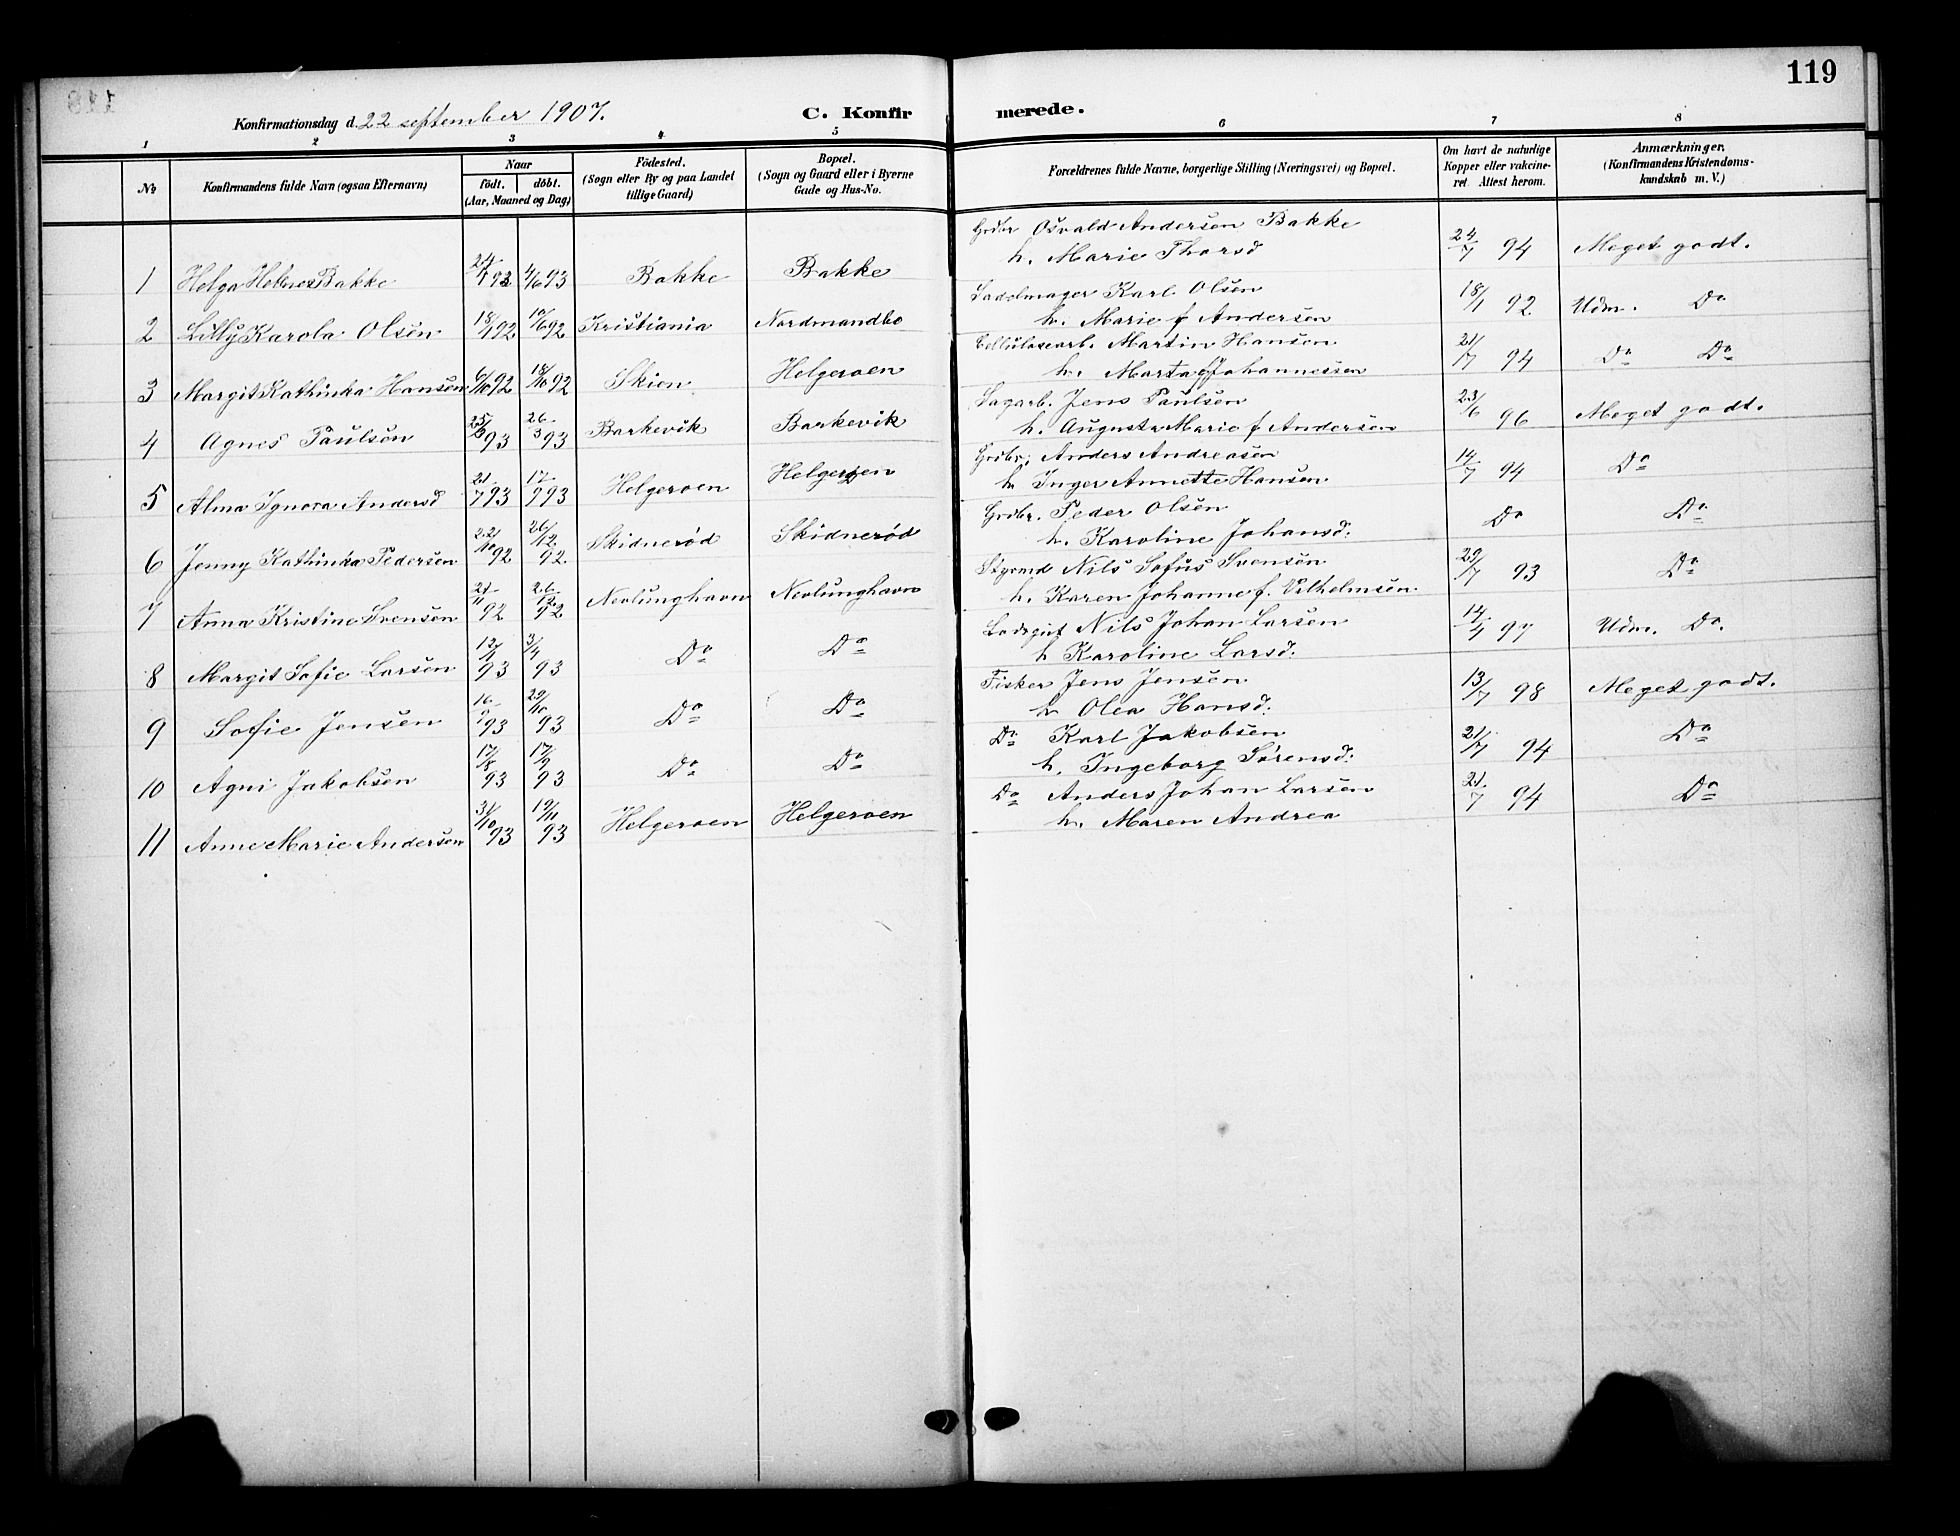 119
Konfirmationsdag d. 22 september 1907. C. Konfir merede.
1 2 3 4 5 6 7 8
No Konfirmandens fulde Navn (ogsaa Efternavn) Naar født. døbt. (Aar, Maaned og Dag) Fødested. (Sogn eller By og paa Landet tillige Gaard) Bopæl. (Sogn og Gaard eller i Byerne Gade og Hus-No. Forældrenes fulde Navne, borgerlige Stilling (Næringsvei) og Bopæl. Om havt de naturlige Kopper eller vakcineret. Attest herom. Anmærkninger. (Konfirmandens Kristendomskundskab m. V.)
1 Helga Bakke 93 4/6 93 Bakke Bakke Grdbr Osvald Andersen Bakke 24/7 94 Meget godt.
h. Marie Thorsd
2 Lilly Karola Olsen 18/1 92 10/6 92 Kristiania Nordmandbo Sadelmager Karl Olsen 18/1 92 Udm. Do
h. Marie f Andersen
3 Margit Kathinka Hansen 6/10 92 18/10 92 Skien Helgeroen Cellulosearb. Martin Hansen 21/7 94 Do Do
h. Marta Johannessen
4 Agnes Paulsen 93 26/3 93 Barkevik Barkevik Sagarb. Jens Paulsen 23/6 96 Meget godt.
h. Augusta Marie f Andersen
5 Alma Ignora Andersd 21/7 93 17/9 93 Helgeroen Helgeroen Grdbr. Anders Andreasen 14/7 94 Do
h. Inger Annette Hansen
6 Jenny Kathinka Pedersen 22/10 92 26/12 92 Skidnerød Skidnerød Grdbr. Peder Olsen Do Do
h. Karoline Johansd.
7 Anna Kristine Svensen 21/11 92 26/12 92 Nevlunghavn Nevlunghavn Styrmd Nils Sofus Svensen 29/7 93 Do
h. Karen Johanne f. Vilhelmsen
8 Margit Sofie Larsen 12/1 93 3/4 93 Do Do Lodsgut Nils Johan Larsen 14/4 97 Udm. Do.
h Karoline Larsd.
9 Sofie Jensen 16/9 93 29/10 93 Do Do Fisker Jens Jensen 13/7 98 Meget godt.
h Olea Hansd.
10 Agni Jakobsen 17/8 93 17/9 93 Do Do Do Karl Jakobsen 21/7 94 Do
h. Ingeborg Sørensd.
11 Anne Marie Andersen 31/10 93 19/11 93 Helgeroen Helgeroen Do Anders Johan Larsen 21/7 94 Do
h. Maren Andrea